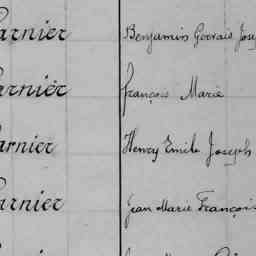 arnier Benjamin Gervais Jos
arnier François Marie
arnier Henry Emile Joseph
arnier Jean Marie François